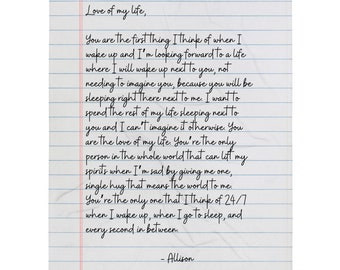 Love of my life,
You are the first thing I think of when I
wake up and I'm looking forward to a life
where I will wake up next to you, not
needing to imagine you, because you will be
sleeping right there next to me. I want to
spend the rest of my life sleeping next to
you and I can't imagine it otherwise. You
are the love of my life. You're the only
person in the whole world that can lift my
spirits when I'm sad by giving me one,
single hug that means the world to me.
You're the only one that I think of 24/7
when I wake up, when I go to sleep, and
every second in between.
- Allison